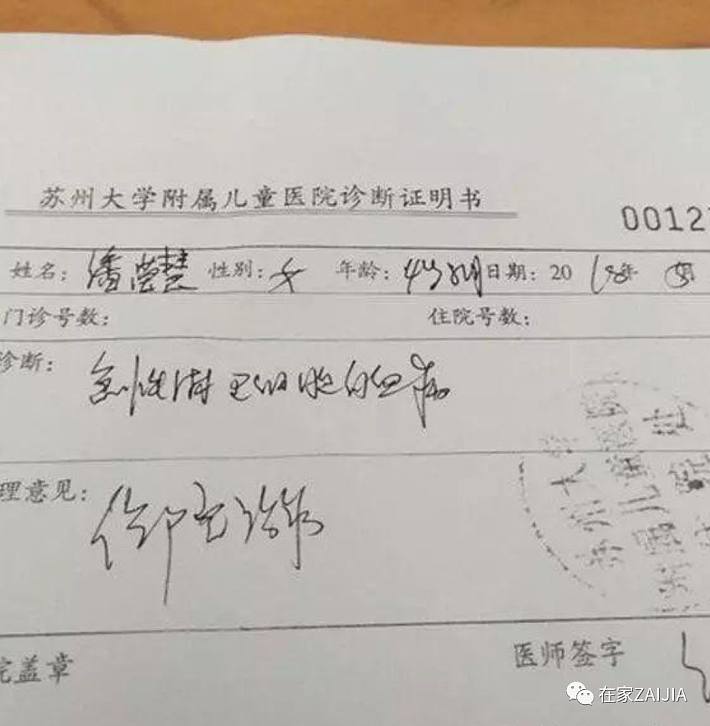 苏州大学附属儿童医院诊断证明书
0012
姓名：潘莹慧 性别：女 年龄：4岁 日期：2018年 月
门诊号数： 住院号数：
诊断：急性淋巴细胞白血病
理意见：住院治疗
苏州大学
附属儿童医院
院盖章 医师签字
在家ZAIJIA